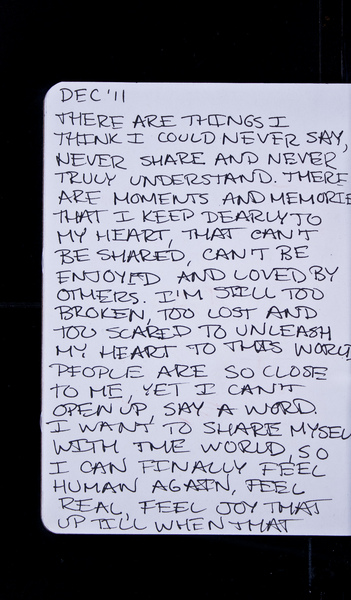 DEC '11
THERE ARE THINGS I
THINK I COULD NEVER SAY,
NEVER SHARE AND NEVER
TRULY UNDERSTAND. THERE
ARE MOMENTS AND MEMORIE
THAT I KEEP DEARLY TO
MY HEART, THAT CAN'T
BE SHARED, CAN'T BE
ENJOYED AND LOVED BY
OTHERS. I'M STILL TOO
BROKEN, TOO LOST AND
TOO SCARED TO UNLEASH
MY HEART TO THIS WORLD
PEOPLE ARE SO CLOSE
TO ME, YET I CAN'T
OPEN UP, SAY A WORD.
I WANT TO SHARE MYSEL
WITH THE WORLD, SO
I CAN FINALLY FEEL
HUMAN AGAIN, FEEL
REAL, FEEL JOY THAT
UP TILL WHEN THAT